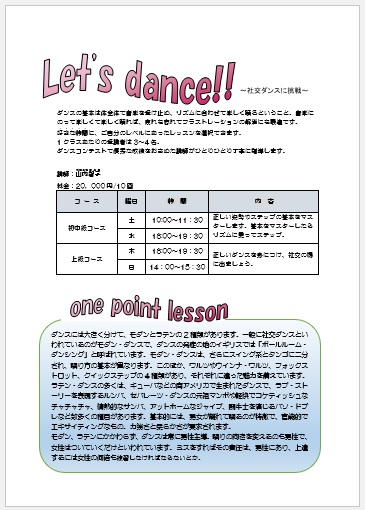 Let's dance!!
～社交ダンスに挑戦～
ダンスの基本は体全体で音楽を受け止め、リズムに合わせて楽しく踊るということ。音楽に
のって楽しくて楽しく踊れば、疲れも忘れてフラストレーションの解消にも最適です。
好きな時間に、ご自分のレベルにあったレッスンを選択できます。
1クラスあたりの受講者は3～4名。
ダンスコンテストで優秀な成績をおさめた講師がひとりひとり丁寧に指導します。
講師：
料金：20，000円/10回
コース 曜日 時間 内容
初中級コース 土 10:00～11：30 正しい姿勢でステップの基本をマス
ターします。基本をマスターしたら
水 18:00～19：30 リズムに乗ってステップ。
上級コース 木 18:00～19：30 正しいダンスを身につけ、社交の場
日 14：00～15：30 に出ましょう。
one point lesson
ダンスには大きく分けて、モダンとラテンの2種類があります。一般に社交ダンスとい
われているのがモダン・ダンスで、ダンスの発症の地のイギリスでは「ボールルーム・
ダンシング」と呼ばれています。モダン・ダンスは、さらにスイング系とタンゴに二分
され、踊り方の基本が異なります。このほか、ワルツやウインナ・ワルツ、フォックス
トロット、クイックステップの4種類があり、それぞれに違った魅力を備えています。
ラテン・ダンスの多くは、キューバなどの南アメリカで生まれたダンスで、ラブ・スト
ーリーを表現するルンバ、セバレーズ・ダンスの元祖マンボや軽快でコケティッシュな
チャチャチャ、情熱的なサンバ、アットホームなジャイブ、闘牛士を演じるパソ・ドブ
レなど数多くの種目があります。基本的には、男女が離れて踊るのが特徴で、官能的で
エキサイティングなもの、力強さと柔らかさが要求されます。
モダン、ラテンにかかわらず、ダンスは常に男性主導。踊りの方向を変えるのも男性で、
女性はついていくだけといわれています。ミスをすればその責任は、男性にあり、上達
するには女性の何倍も練習しなければならないとか。